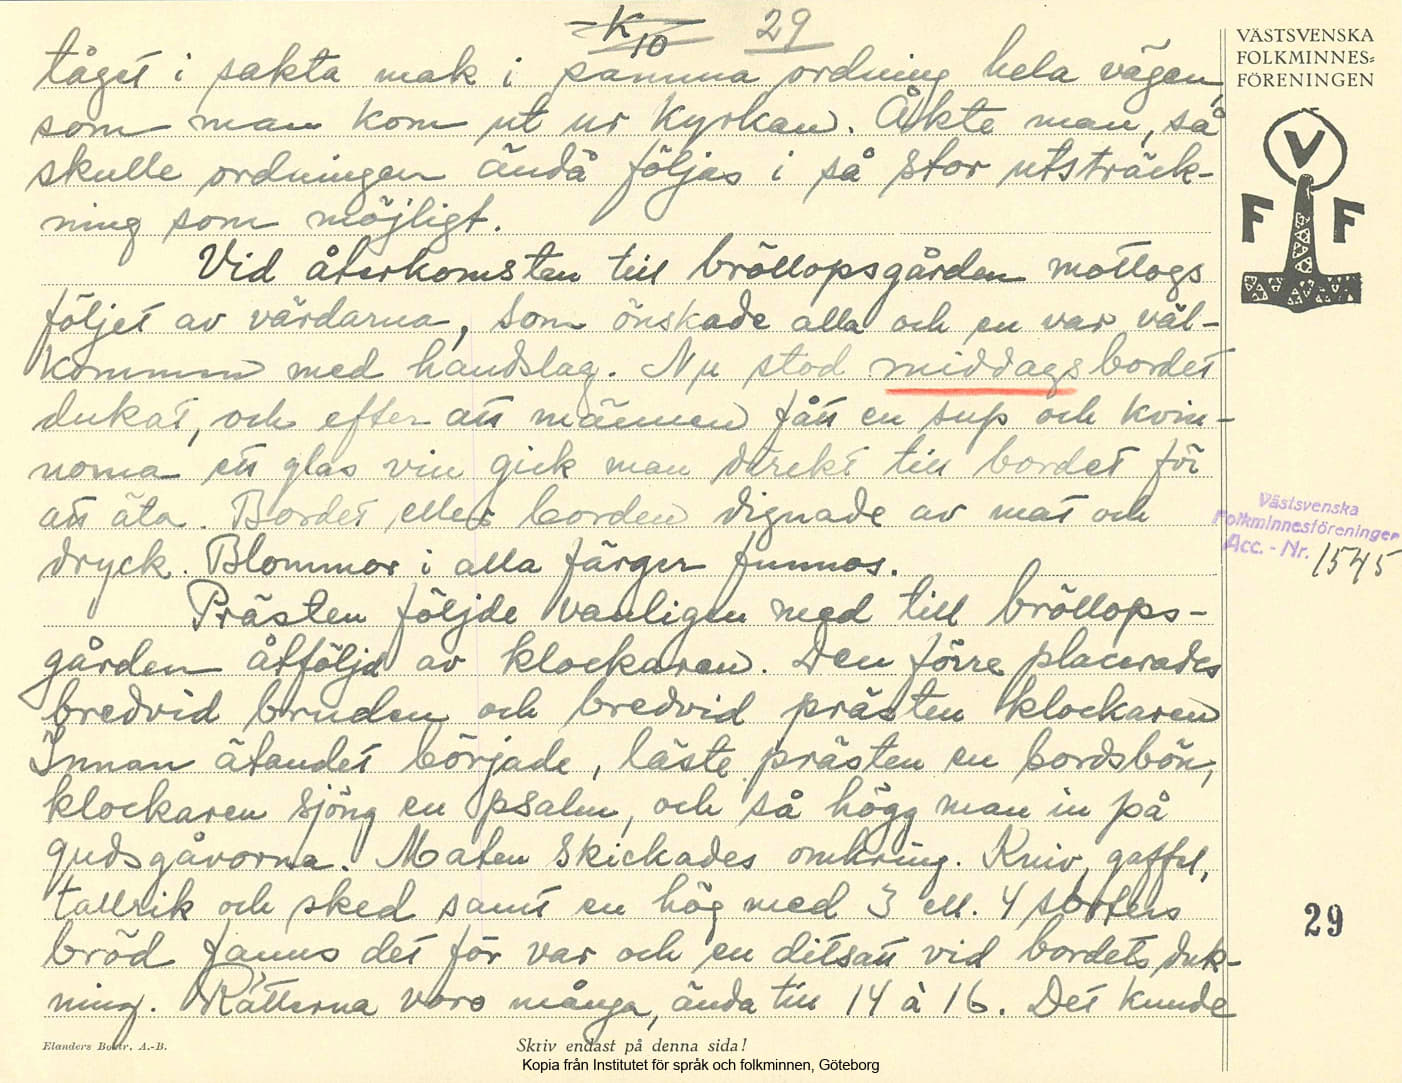 K 10 29
tåget i sakta mak i samma ordning hela vägen,
som man kom ut ur kyrkan. Åkte man, så
skulle ordningen ändå följas i så stor utsträck-
ning som möjligt.
Vid återkomsten till bröllopsgården mottogs
följet av värdarna, som önskade alla och en var väl-
kommen med handslag. Nu stod middagsbordet
dukat, och efter att männen fått en sup och kvin-
norna ett glas vin gick man direkt till bordet för
att äta. Bordet eller borden dignade av mat och
dryck. Blommor i alla färger funnos.
Prästen följde vanligen med till bröllops-
gården åtföljd av klockaren. Den förre placerades
bredvid bruden och bredvid prästen klockaren
Innan ätandet började, läste prästen en bordsbön,
klockaren sjöng en psalm, och så högg man in på
gudsgåvorna. Maten skickades omkring. Kniv, gaffel,
tallrik och sked samt en hög med 3 ell. 4 sorters
bröd fanns det för var och en ditsatt vid bordets duk-
ning. Rätterna voro många, ända till 14 à 16. Det kunde
VÄSTSVENSKA
FOLKMINNES=
FÖRENINGEN
V
F F
Västsvenska
Folkminnesföreningen
Acc. - Nr. 1545
29
Elanders Boktr. A.-B.
Skriv endast på denna sida!
Kopia från Institutet för språk och folkminnen, Göteborg